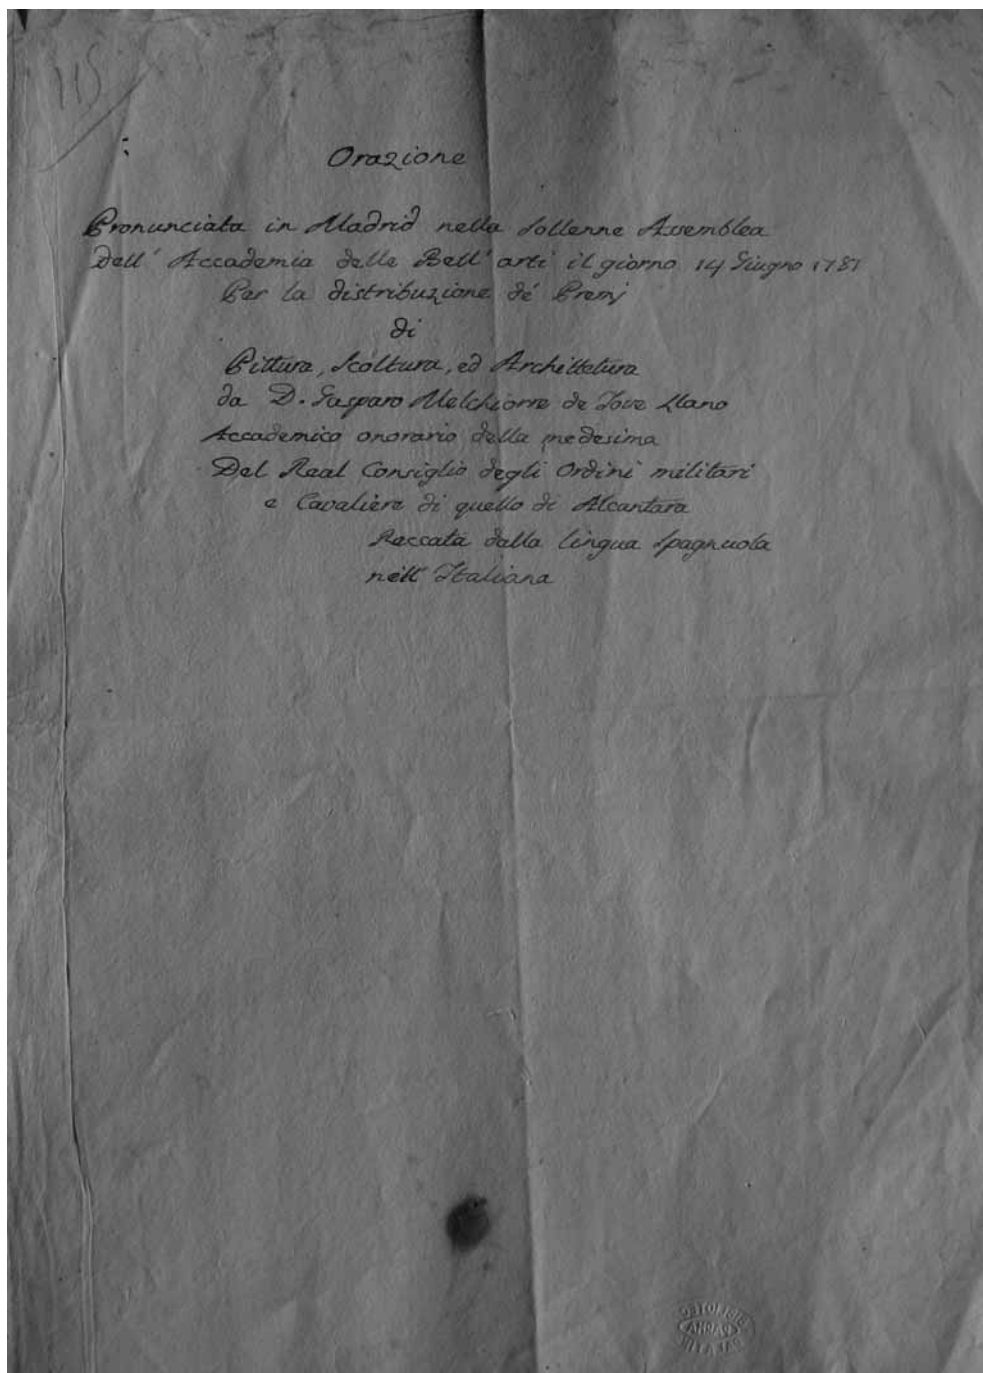 115
Orazione
Pronunciata in Madrid nella Sollenne Assemblea
Dell' Accademia delle Bell' arti il giorno 14 Giugno 1781
Per la distribuzione de' Premj
di
Pittura, Scoltura, ed Archittetura
da D. Gasparo Melchiorre de Jove Llano
Accademico onorario della medesima
Del Real Consiglio degli Ordini militari
e Cavaliere di quello di Alcantara
Reccata dalla lingua Spagnuola
nell' Italiana
PARMA